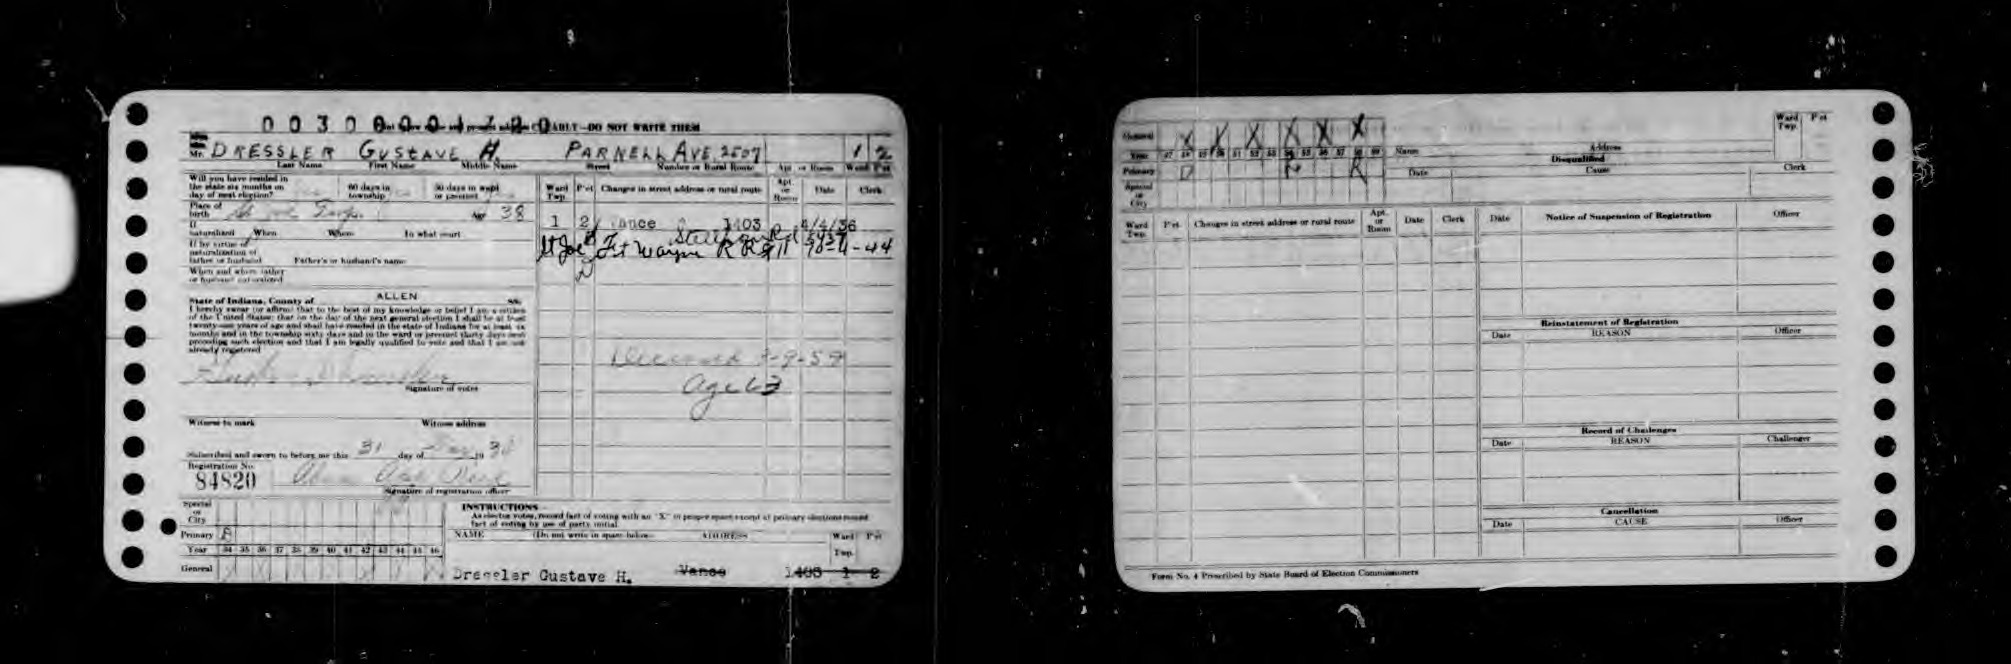 0030 0001720
CLEARLY—DO NOT WRITE THEM
Mr. DRESSLER GUSTAVE H. PARNELL AVE. 2507 1 2
Last Name First Name Middle Name Street Number or Rural Route Apt. or Room Ward P'ct
Will you have resided in the state six months on day of next election? 60 days in township 30 days in ward or precinct
Place of birth St Joe Twp. Age 38
If naturalized When Where In what court
If by virtue of naturalization of father or husband Father's or husband's name
When and where father or husband naturalized
State of Indiana, County of ALLEN SS.
I hereby swear (or affirm) that to the best of my knowledge or belief I am a citizen
of the United States; that on the day of the next general election I shall be at least
twenty-one years of age and shall have resided in the state of Indiana for at least six
months and in the township sixty days and in the ward or precinct thirty days next
preceding such election and that I am legally qualified to vote and that I am not
already registered
Signature of voter
Witness to mark Witness address
Subscribed and sworn to before me this 31 day of 19 34
Registration No.
84820
Signature of registration officer
Ward Twp. P'ct Changes in street address or rural route Apt. or Room Date Clerk
1 2 Vance 1403 4/4/36
St Joe Ft Wayne R R # 11 44
Deceased 59
Age 63
Special or City
Primary
Year 34 35 36 37 38 39 40 41 42 43 44 45 46
General
INSTRUCTIONS
As elector votes, record fact of voting with an "X" in proper space except at primary elections record
fact of voting by use of party initial.
NAME (Do not write in space below) ADDRESS Ward Twp. P'ct
Dressler Gustave H. Vance 1403 1 2
General X X X X X X
Year 47 48 49 50 51 52 53 54 55 56 57 58 59
Primary D R
Special or City
Name Address Ward Twp. P'ct
Disqualified
Date Cause Clerk
Ward Twp. P'ct Changes in street address or rural route Apt. or Room Date Clerk
Date Notice of Suspension of Registration Officer
Reinstatement of Registration
Date REASON Officer
Record of Challenges
Date REASON Challenger
Cancellation
Date CAUSE Officer
Form No. 4 Prescribed by State Board of Election Commissioners